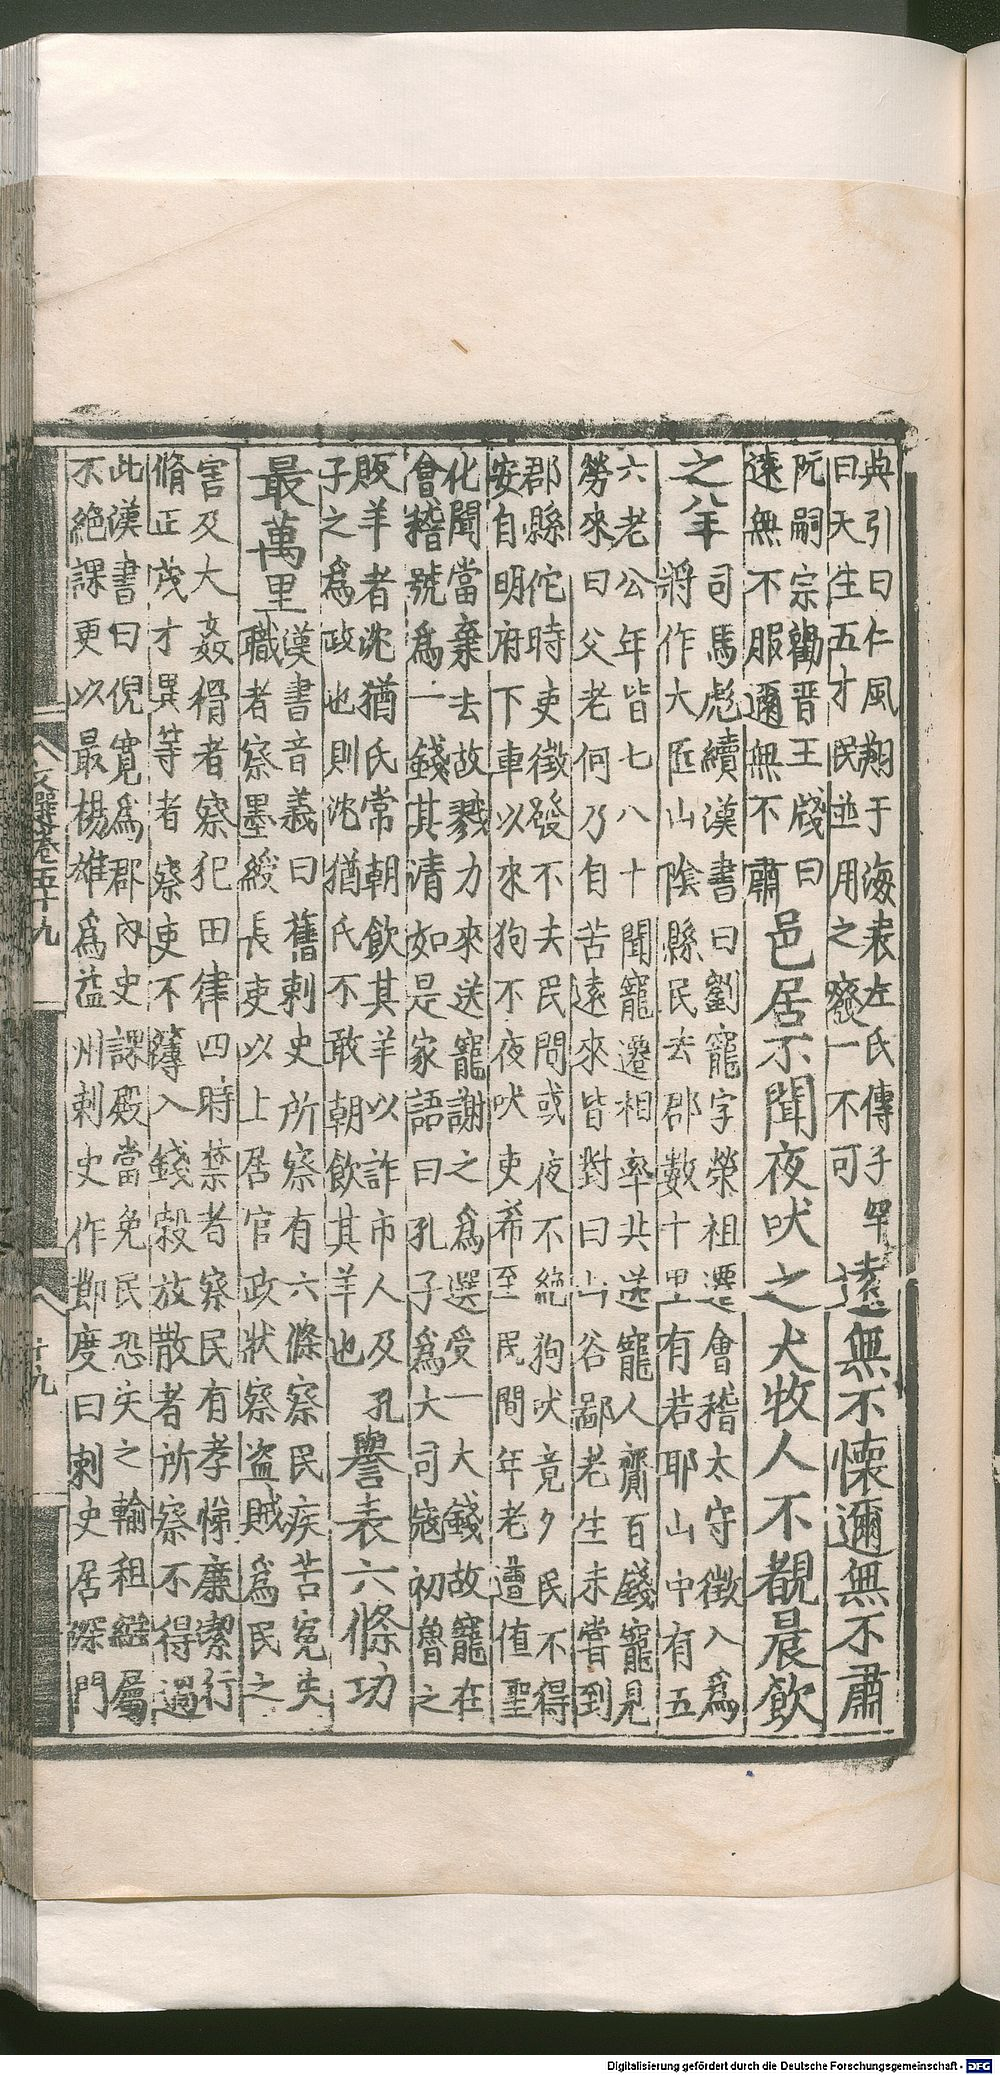 典引曰仁風翔于海表左氏傳子罕
曰天生五才民並用之廢一不可
遠無不懷邇無不肅
阮嗣宗勸晉王牋曰
遠無不服邇無不肅
邑居不聞夜吠之犬牧人不覩晨飲
之羊
司馬彪續漢書曰劉寵字榮祖遷會稽太守徵入爲
將作大匠山陰縣民去郡數十里有若耶山中有五
六老公年皆七八十聞寵遷相率共送寵人齎百錢寵見
勞來曰父老何乃自苦遠來皆對曰山谷鄙老生未嘗到
郡縣佗時吏徵發不去民間或夜不絶狗吠竟夕民不得
安自明府下車以來狗不夜吠吏希至民間年老遭值聖
化聞當棄去故戮力來送寵謝之爲選受一大錢故寵在
會稽號爲一錢其清如是家語曰孔子爲大司寇初魯之
販羊者沈猶氏常朝飲其羊以詐市人及孔
子之爲政也則沈猶氏不敢朝飲其羊也
譽表六條功
最萬里
漢書音義曰舊刺史所察有六條察民疾苦冤失
職者察墨綬長吏以上居官政狀察盜賊爲民之
害及大姦猾者察犯田律四時禁者察民有孝悌廉潔行
脩正茂才異等者察吏不簿入錢穀放散者所察不得過
此漢書曰倪寬爲郡内史課殿當免民恐失之輸租繦屬
不絶課更以最楊雄爲益州刺史作節度曰刺史居深門
文選卷五十九
廿九
Digitalisierung gefördert durch die Deutsche Forschungsgemeinschaft - DFG